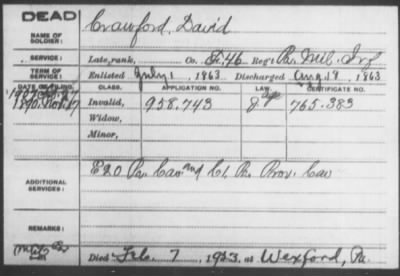 DEAD
NAME OF SOLDIER: Crawford, David
SERVICE: Late, rank, Co. F. 46 Reg't Pa. Mil. Inf
TERM OF SERVICE: Enlisted July 1, 1863. Discharged Aug. 18, 1863
DATE OF FILING. CLASS. APPLICATION NO. LAW. CERTIFICATE NO.
1890. Nov. 17 Invalid, 958,743 765.383
Widow,
Minor,
ADDITIONAL SERVICES: E 20 Pa. Cav and Pa. Prov. Cav
REMARKS:
Died Feb. 7, 1923, at Wexford, Pa.